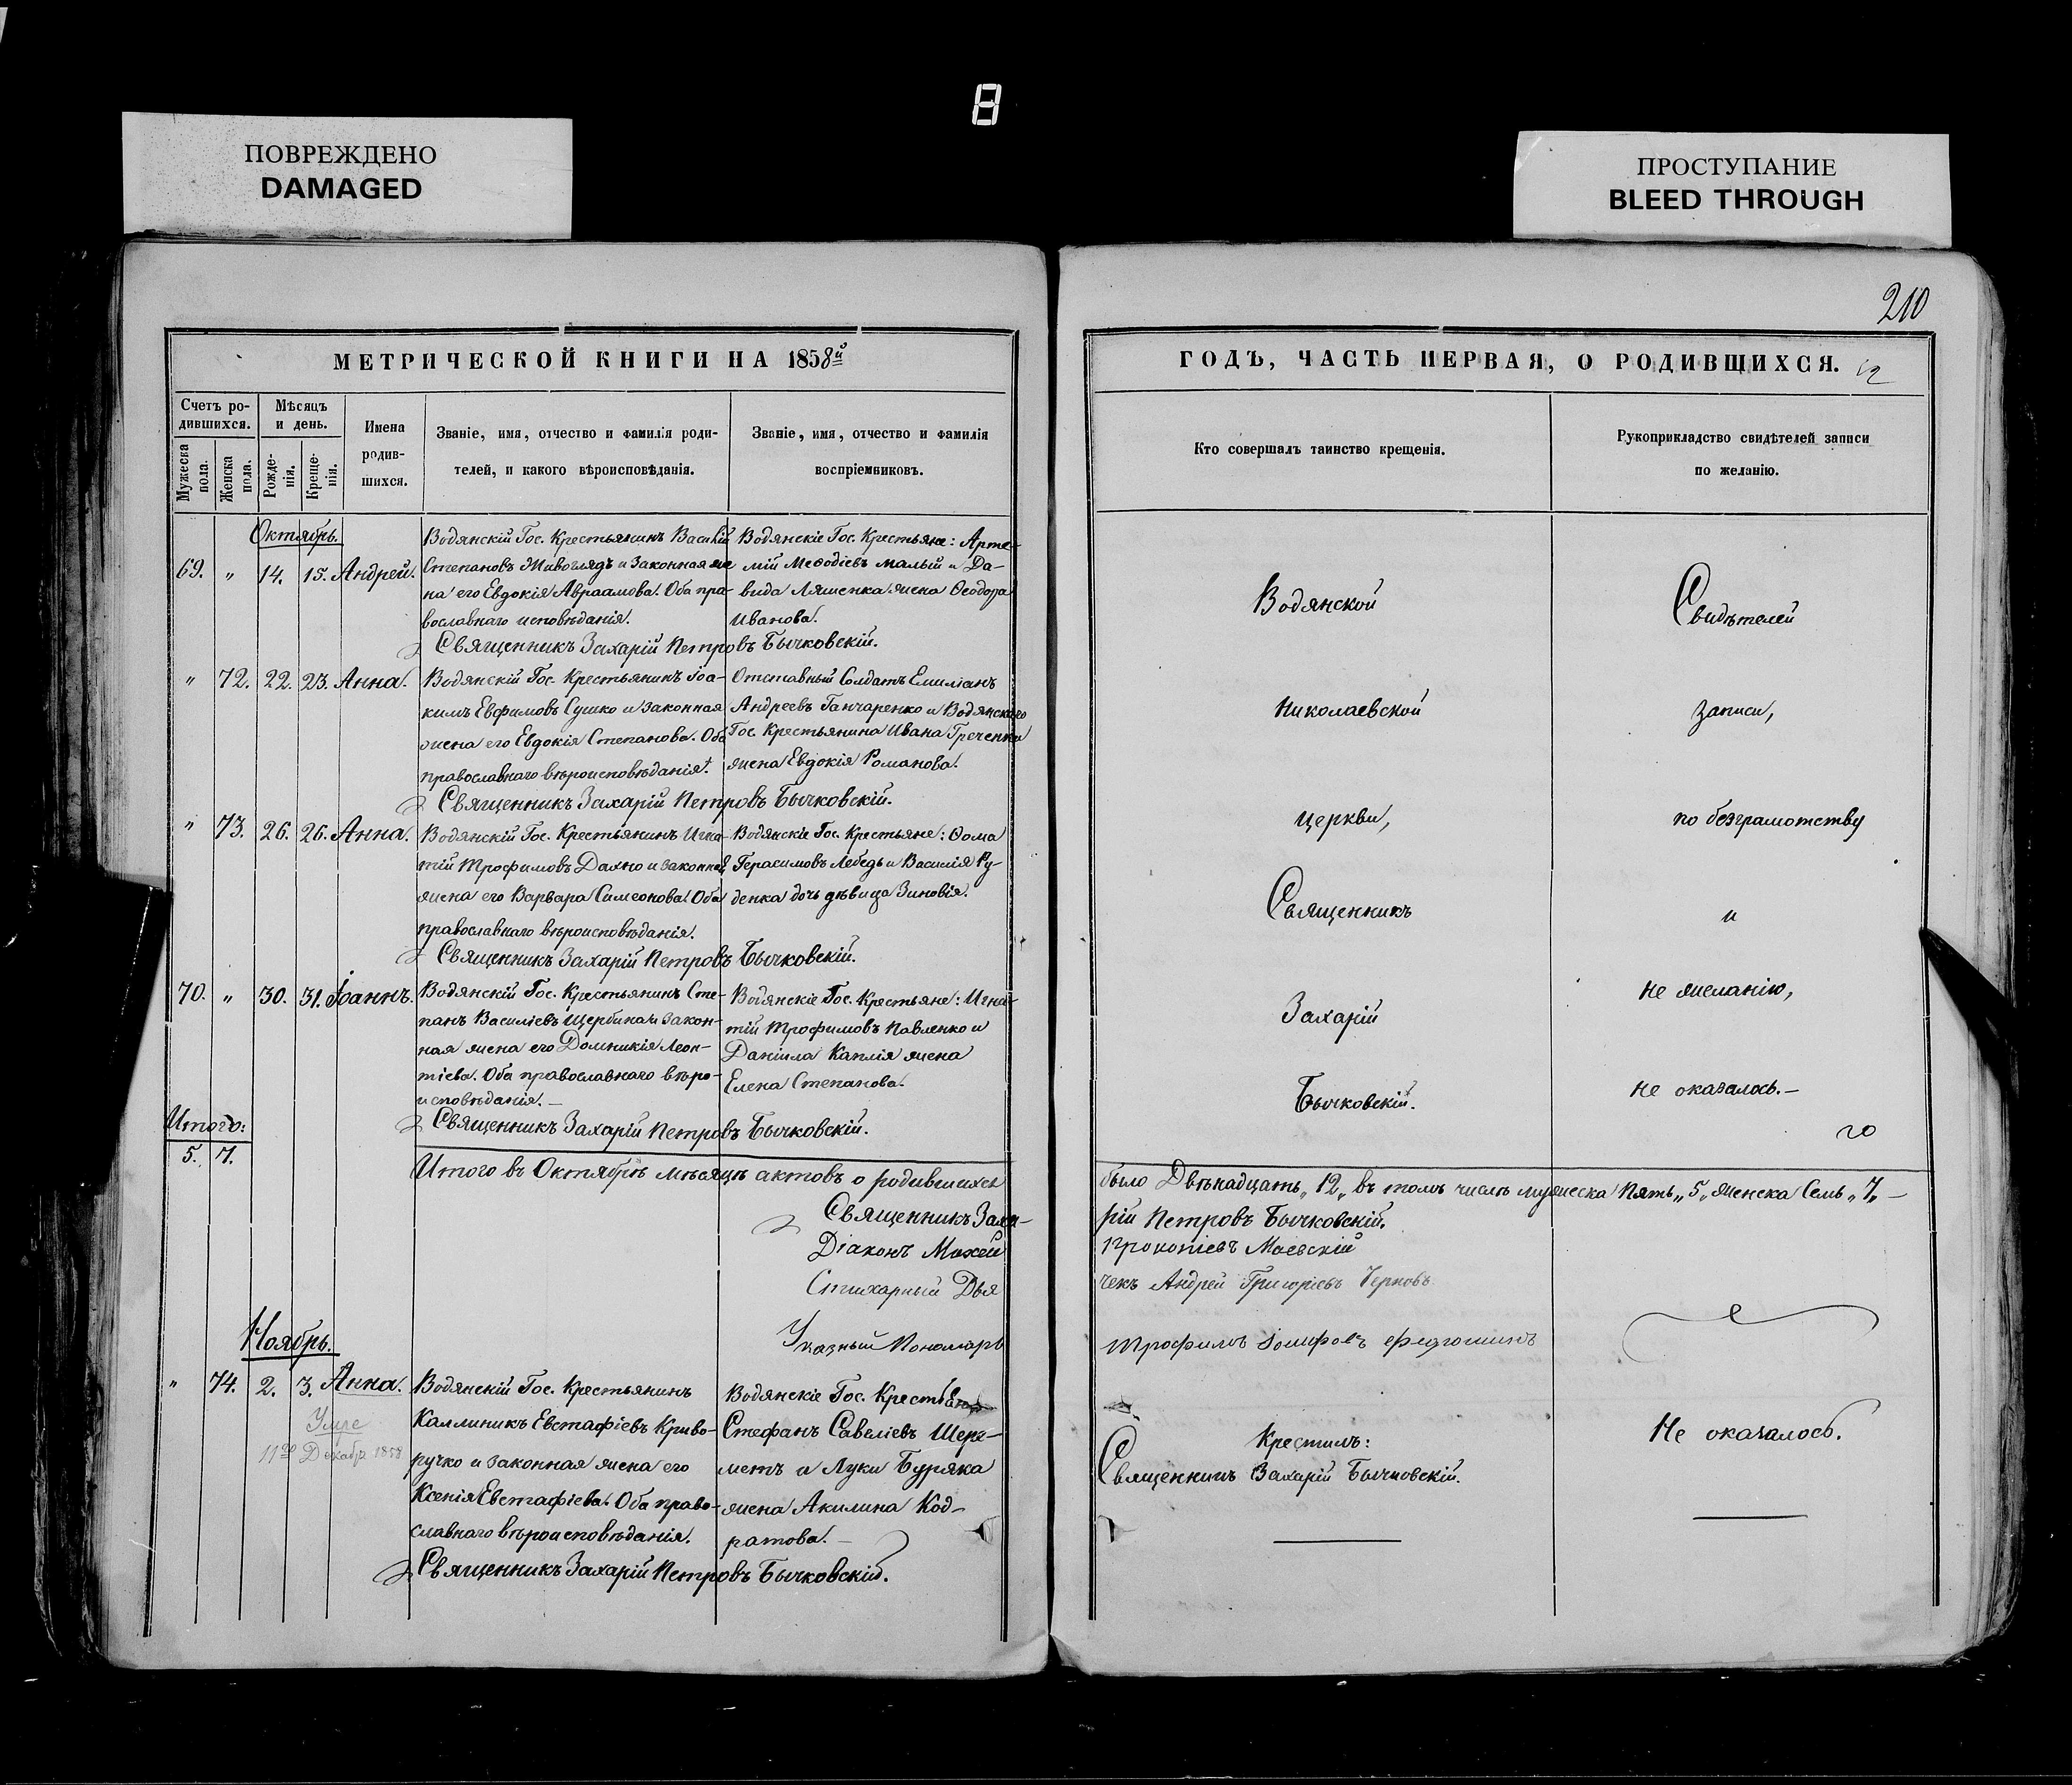 8
ПОВРЕЖДЕНО
DAMAGED
ПРОСТУПАНИЕ
BLEED THROUGH
210
МЕТРИЧЕСКОЙ КНИГИ НА 1858й
Счетъ ро-
дившихся.
Мужеска
пола.
Женска
пола.
Мѣсяцъ
и день.
Рожде-
нія.
Креще-
нія.
Имена
родив-
шихся.
Званіе, имя, отчество и фамилія роди-
телей, и какого вѣроисповѣданія.
Званіе, имя, отчество и фамилія
воспріемниковъ.
Октябрь.
69. " 14. 15. Андрей.
Водянскій Гос. Крестьянинъ Василій
Степановъ Живоглядъ и законная же
на его Евдокія Авраамова. Оба пра-
вославнаго исповѣданія.
Водянскіе Гос. Крестьяне: Арте-
мій Меѳодіевъ малый и Да-
вида Ляшенка жена Ѳеодора
Иванова.
Священникъ Захарій Петровъ Бычковскій.
" 72. 22. 23. Анна.
Водянскій Гос. Крестьянинъ Іоа-
кимъ Евфимовъ Сушко и законная
жена его Евдокія Степанова. Оба
православнаго вѣроисповѣданія.
Отставный Солдатъ Емиліанъ
Андреевъ Ганчаренко и Водянскаго
Гос. Крестьянина Ивана Гречёнки
жена Евдокія Романова.
Священникъ Захарій Петровъ Бычковскій.
" 73. 26. 26. Анна.
Водянскій Гос. Крестьянинъ Игна-
тій Трофимовъ Дахно и законная
жена его Варвара Симеонова. Оба
православнаго вѣроисповѣданія.
Водянскіе Гос. Крестьяне: Ѳома
Герасимовъ Лебедь и Василія Ру-
денка дочь дѣвица Зиновія.
Священникъ Захарій Петровъ Бычковскій.
70. " 30. 31. Іоаннъ.
Водянскій Гос. Крестьянинъ Сте-
панъ Василіевъ Щербина и закон-
ная жена его Домникія Леон-
тіева. Оба православнаго вѣро-
исповѣданія.—
Водянскіе Гос. Крестьяне: Игна-
тій Трофимовъ Павленко и
Даніила Каплія жена
Елена Степанова.
Священникъ Захарій Петровъ Бычковскій.
Итого:
5. 7.
Итого въ Октябрѣ мѣсяцѣ актовъ о родившихся
Священникъ Заха-
Діаконъ
Стихарный Дья
Указный Пономарь
Ноябрь.
" 74. 2. 3. Анна.
Умре
11го Декабр 1858
Водянскій Гос. Крестьянинъ
Каллиникъ Евстафіевъ Криво-
ручко и законная жена его
Ксенія Евстафіева. Оба право-
славнаго вѣроисповѣданія.
Водянскіе Гос. Крестьяне
Стефанъ Савеліевъ Шере-
метъ и Луки Буряка
жена Акилина Код-
ратова.—
Священникъ Захарій Петровъ Бычковскій.
ГОДЪ, ЧАСТЬ ПЕРВАЯ, О РОДИВШИХСЯ.
12
Кто совершалъ таинство крещенія.
Рукоприкладство свидѣтелей записи
по желанію.
Водянской
Николаевской
церкви,
Священникъ
Захарій
Бычковскій.
Свидѣтелей
записи,
по безграмотству
и
не желанію,
не оказалось.—
было Двѣнадцать „12„ въ томъ числѣ мужеска Пять „5„ женска Семь „7„ —
рій Петровъ Бычковскій.
Прокопіевъ Маевскій
чекъ Андрей Григоріевъ Черновъ
Трофимъ Іосифовъ
Крестилъ:
Священникъ Захарій Бычковскій.
Не оказалось.